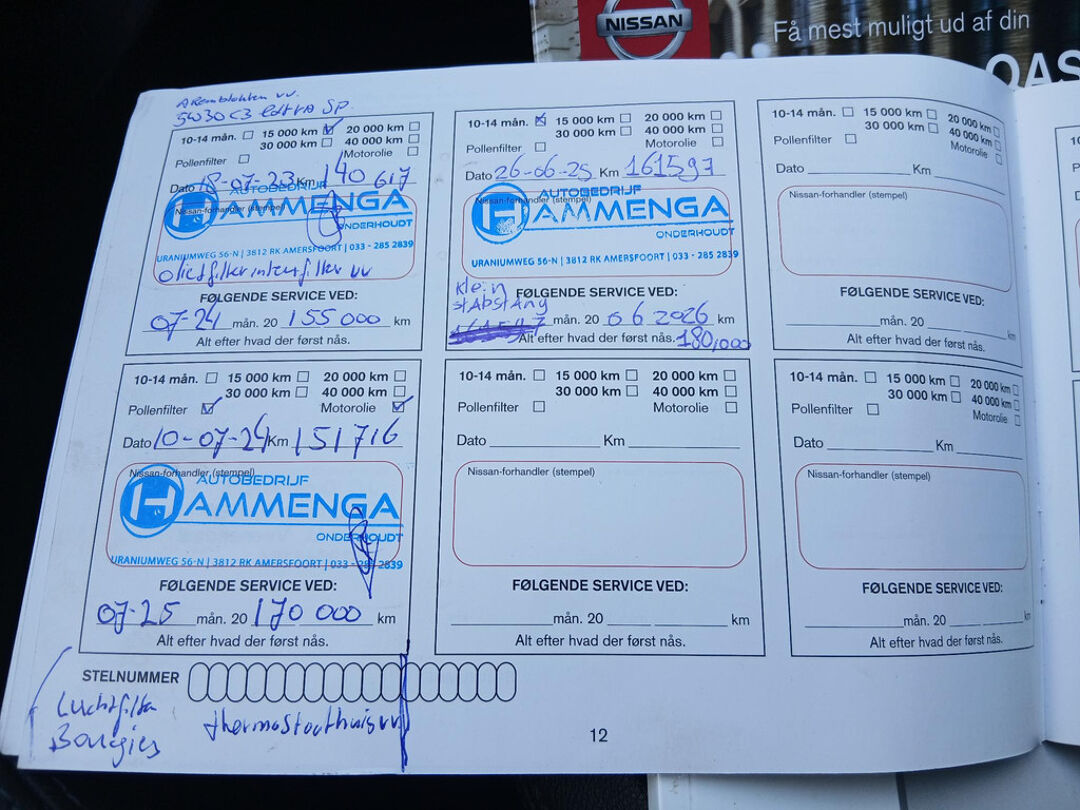 NISSAN
Få mest muligt ud af din
5W30 C3 extra SP.
10-14 mån. 15 000 km 20 000 km
30 000 km 40 000 km
Pollenfilter Motorolie
Dato 18-07-23 Km 140 617
Nissan-forhandler (stempel)
AUTOBEDRIJF
HAMMENGA
ONDERHOUDT
URANIUMWEG 56-N | 3812 RK AMERSFOORT | 033 - 285 2839
FØLGENDE SERVICE VED:
07-24 mån. 20 155 000 km
Alt efter hvad der først nås.
10-14 mån. 15 000 km 20 000 km
30 000 km 40 000 km
Pollenfilter Motorolie
Dato 26-06-25 Km 161597
Nissan-forhandler (stempel)
AUTOBEDRIJF
HAMMENGA
ONDERHOUDT
URANIUMWEG 56-N | 3812 RK AMERSFOORT | 033 - 285 2839
Klein
stAbstAng
FØLGENDE SERVICE VED:
mån. 20 06 2026 km
Alt efter hvad der først nås. 180,000
10-14 mån. 15 000 km 20 000 km
30 000 km 40 000 km
Pollenfilter Motorolie
Dato Km
Nissan-forhandler (stempel)
FØLGENDE SERVICE VED:
mån. 20 km
Alt efter hvad der først nås.
10-14 mån. 15 000 km 20 000 km
30 000 km 40 000 km
Pollenfilter Motorolie
Dato 10-07-24 Km 151716
Nissan-forhandler (stempel)
AUTOBEDRIJF
HAMMENGA
ONDERHOUDT
URANIUMWEG 56-N | 3812 RK AMERSFOORT | 033 - 285 2839
FØLGENDE SERVICE VED:
07-25 mån. 20 170 000 km
Alt efter hvad der først nås.
10-14 mån. 15 000 km 20 000 km
30 000 km 40 000 km
Pollenfilter Motorolie
Dato Km
Nissan-forhandler (stempel)
FØLGENDE SERVICE VED:
mån. 20 km
Alt efter hvad der først nås.
10-14 mån. 15 000 km 20 000 km
30 000 km 40 000 km
Pollenfilter Motorolie
Dato Km
Nissan-forhandler (stempel)
FØLGENDE SERVICE VED:
mån. 20 km
Alt efter hvad der først nås.
STELNUMMER
Luchtfilter
Bougies
thermostaathuis vv
12